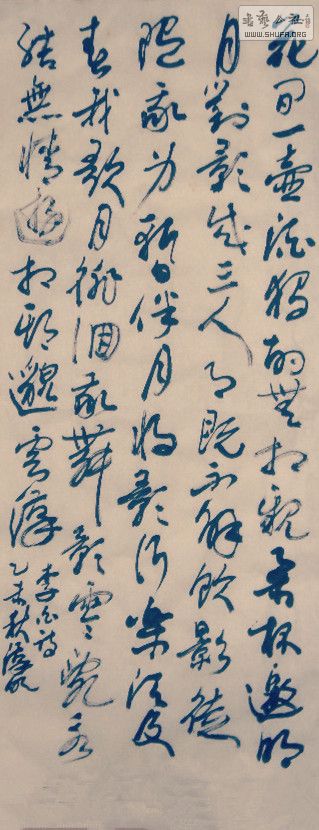 花間一壺酒獨酌無相親舉杯邀明
月對影成三人月既不解飲影徒
隨我身暫伴月將影行樂須及
春我歌月徘徊我舞影零亂永
結無情遊相期邈雲漢
李白詩
乙未秋
書法公社
WWW.SHUFA.ORG